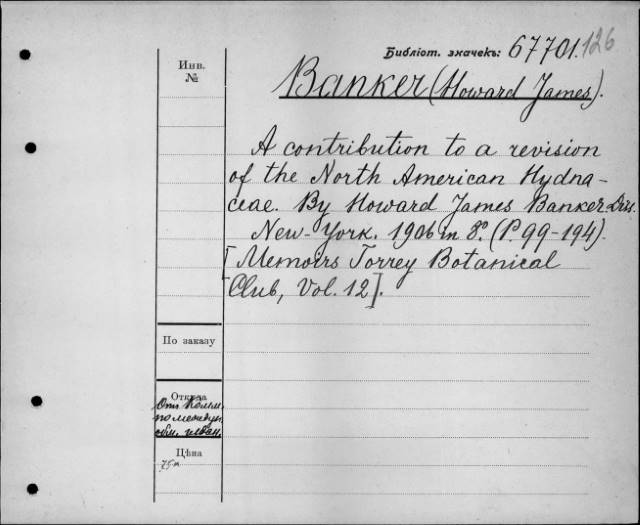 Библіот. значекъ: 67701.126
Инв.
№
Banker (Howard James).
A contribution to a revision
of the North American Hydna-
ceae. By Howard James Banker. Diss.
New-York. 1906 in 8°. (P. 99-194).
[Memoirs Torrey Botanical
Club, Vol. 12].
По заказу
Откуда
по междун.
обм. издан.
Цѣна